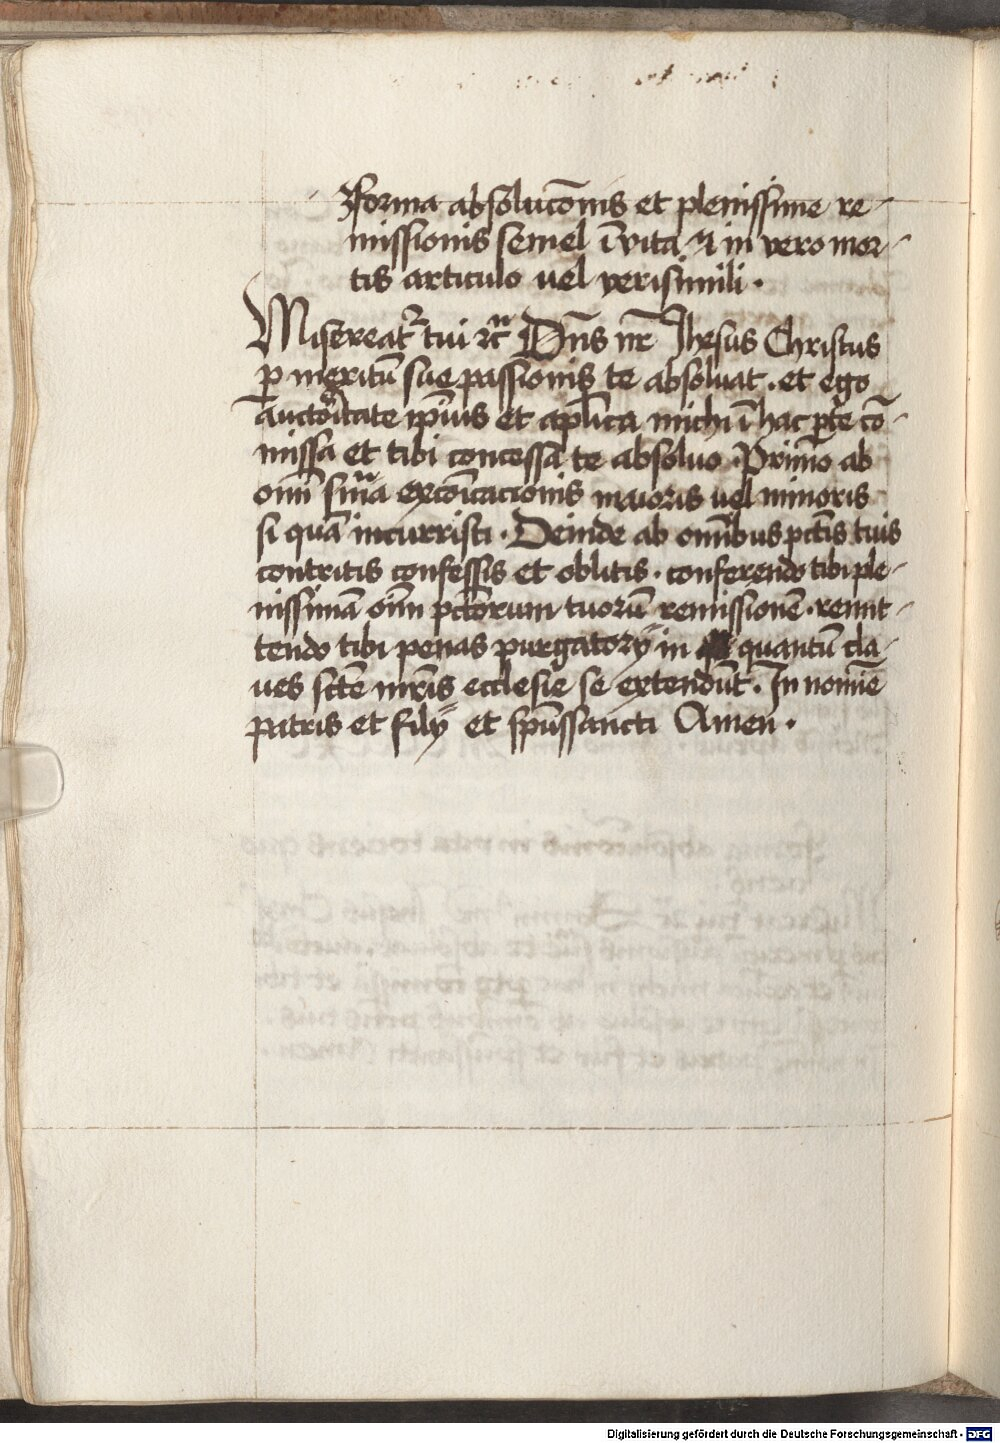 Forma absolucōnis et plenissime re-
missionis semel ī vita & in vero mor-
tis articulo vel verisimili.
Misereatr tui &c Dn̄s nr̄ Jhesus Christus
p meritū sue passionis te absoluat. et ego
auctoritate ip̄ius et aplīca michi ī hac pte cō-
missa et tibi concessa te absoluo. Primo ab
om̄i sn̄ia excōicacionis maioris vel minoris
si quā incurristi. Deinde ab om̄ibus pctīs tuis
contritis confessis et oblitis. conferendo tibi ple-
nissimā oīm pctōrum tuorū remissionē. remit-
tendo tibi penas purgatorÿ in quantū cla-
ues sctē mr̄is ecclesie se extendūt. In nomīe
patris et filÿ et spūssancti Amen.
Digitalisierung gefördert durch die Deutsche Forschungsgemeinschaft - DFG